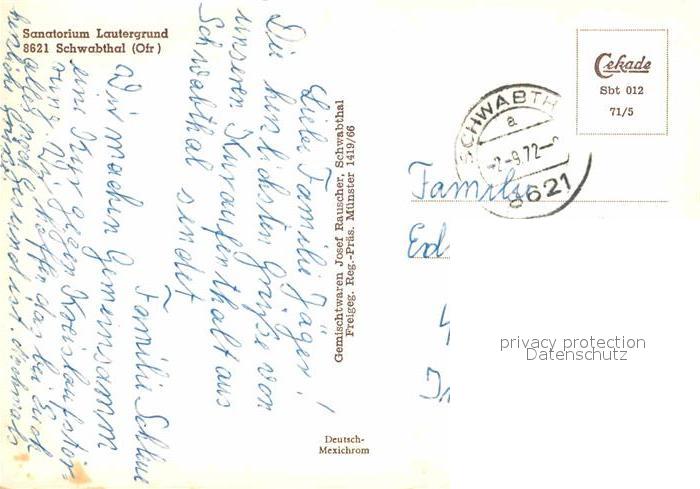 Sanatorium Lautergrund
8621 Schwabthal (Ofr)
Liebe Familie Jäger!
Die herzlichsten Grüße von
unseren Kuraufenthalt aus
Schwabthal sendet
Familie
Wir machen Gemeinsamm
eine Kur gegen Kreislaufstör-
ung. Wir hoffen das bei Euch
alles noch Gesund ist. Nochmals
herzliche Grüße
Gemischtwaren Josef Rauscher, Schwabthal
Freigeg. Reg.-Präs. Münster 1419/66
Deutsch-
Mexichrom
Cekade
Sbt 012
71/5
SCHWABTH
a
-2-9.72-
8621
Familie
privacy protection
Datenschutz